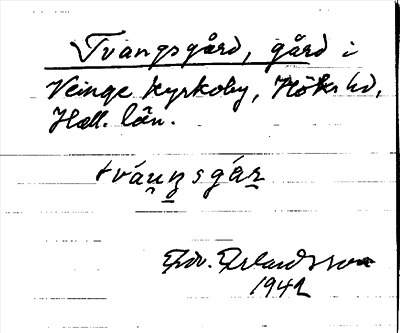 Tvangsgård, gård i
Veinge kyrkoby, Höks hd,
Hall. län.
tváu̯ŋsgár
Edv. Erlandsson
1941